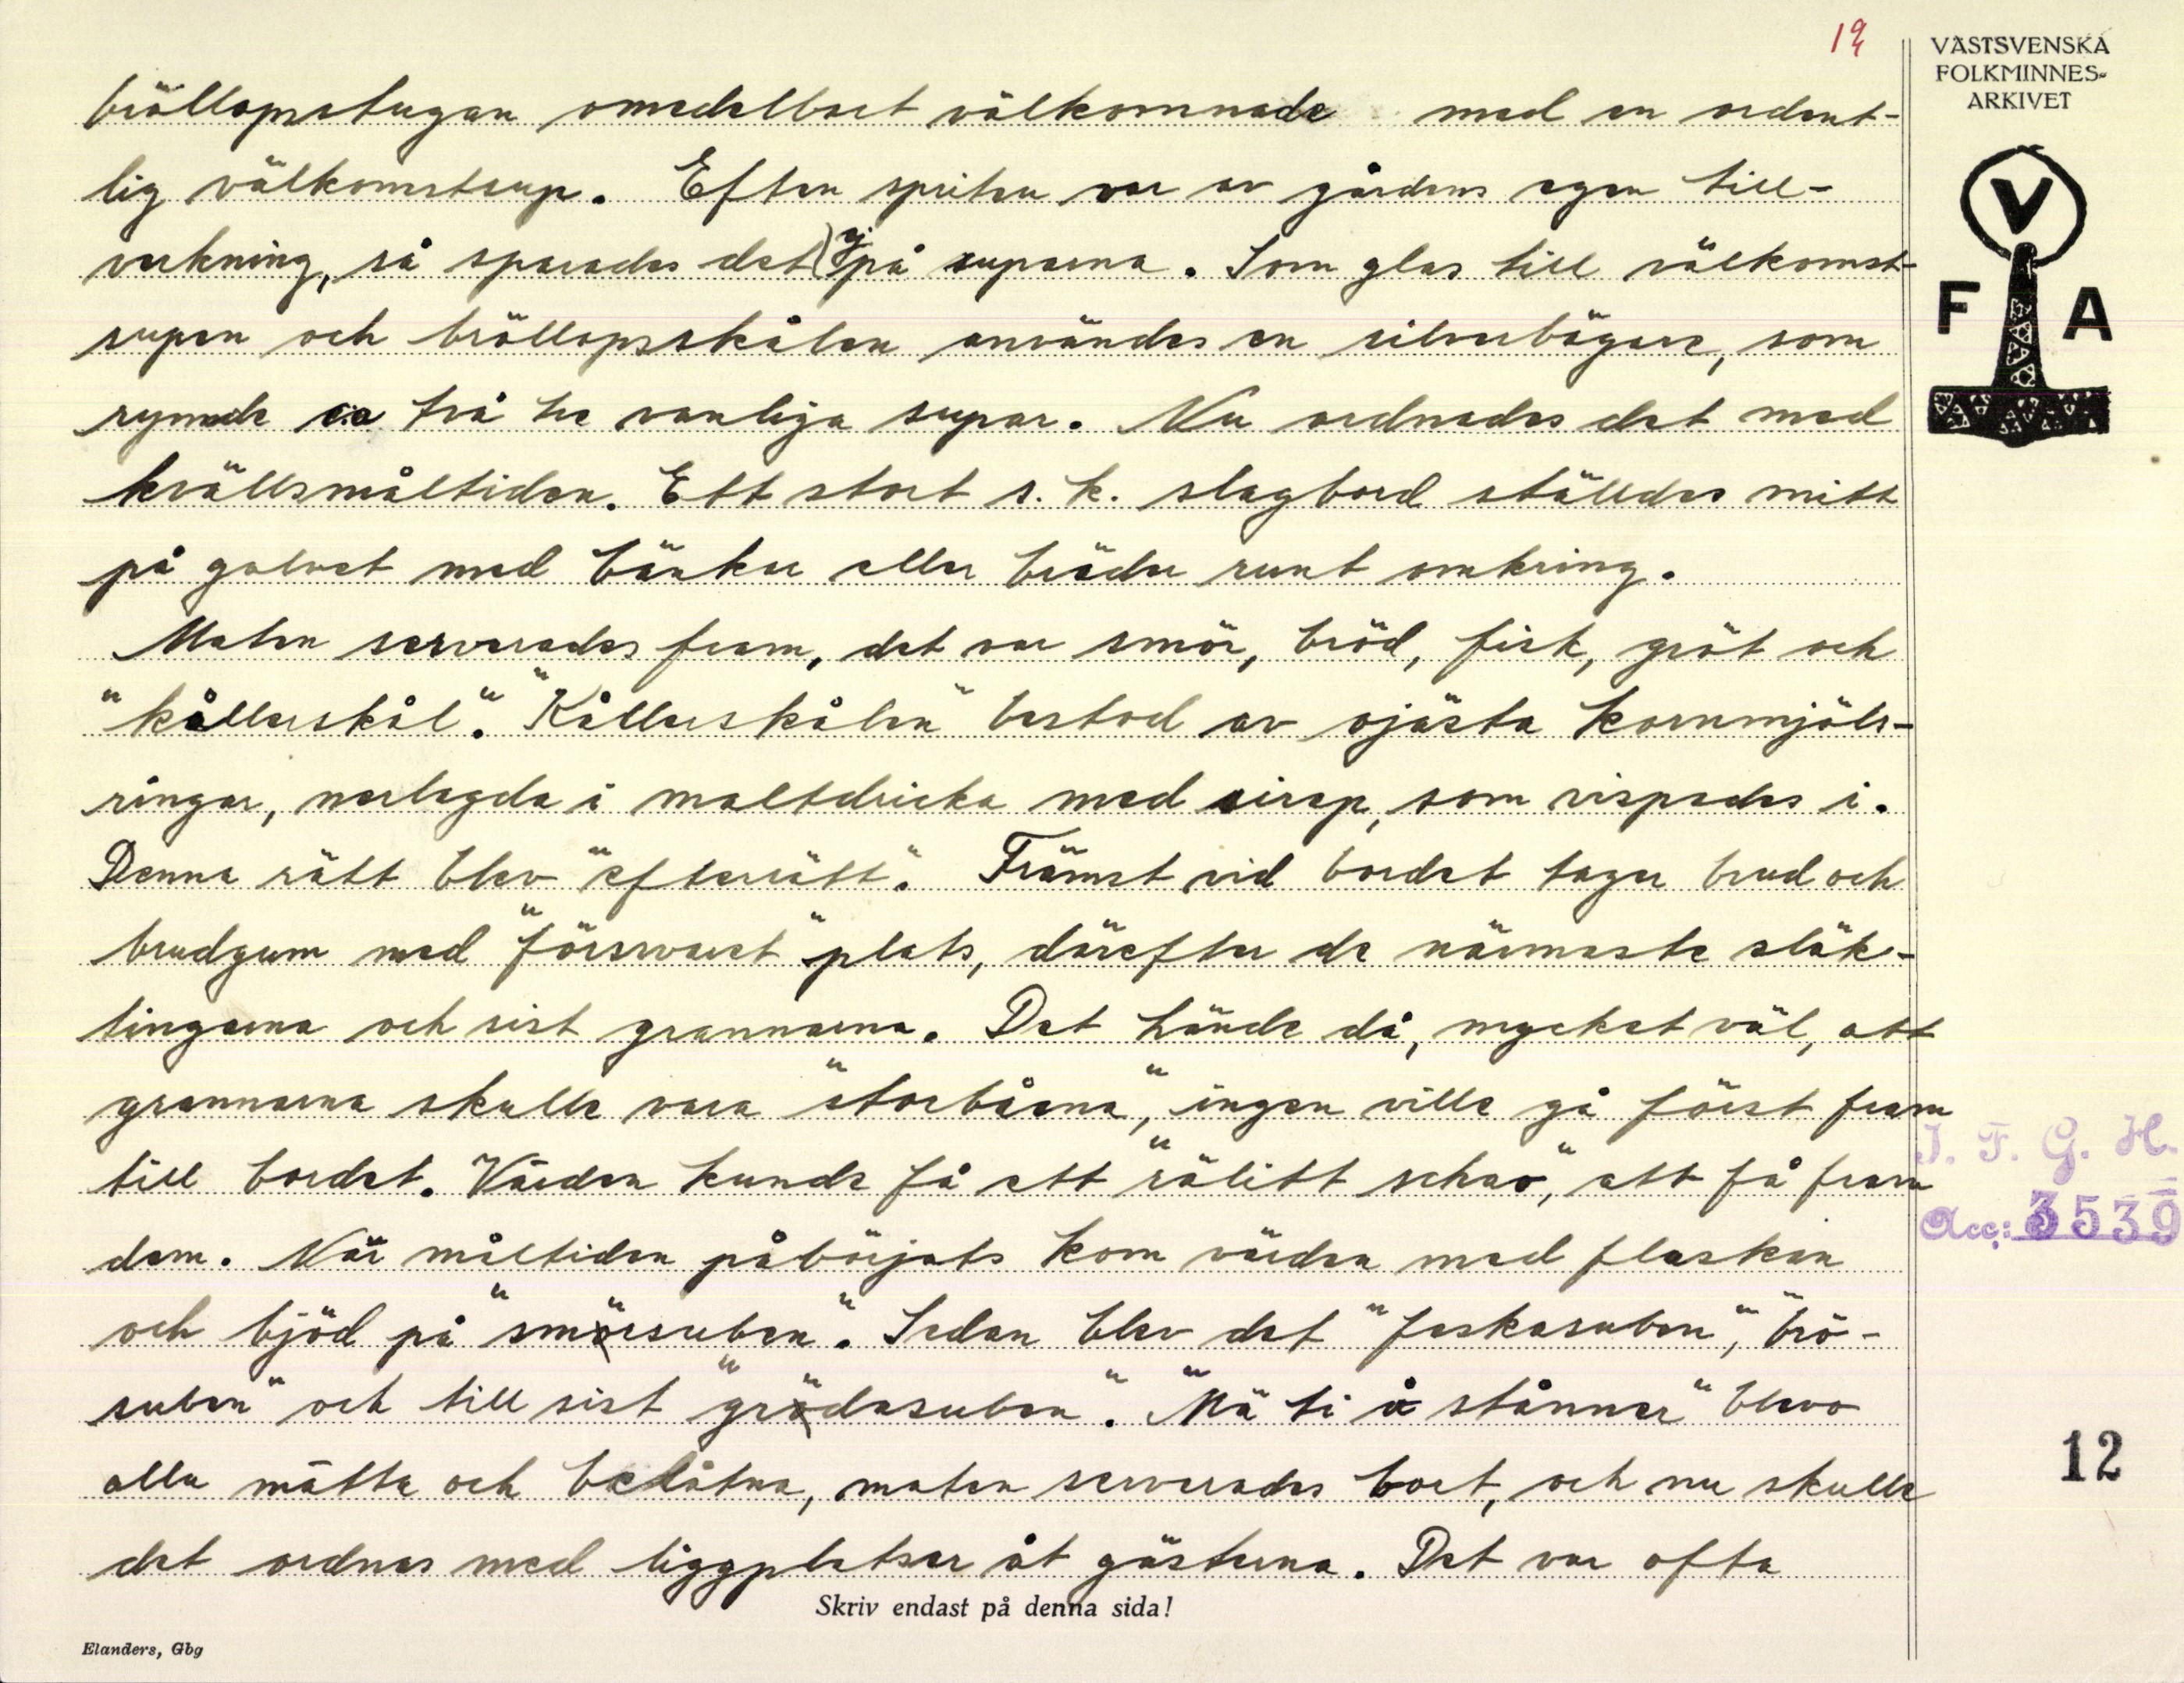 19
VÄSTSVENSKA
FOLKMINNES-
ARKIVET
V
F A
bröllopsstugan omedelbart välkomnade med en ordent-
lig välkomstsup. Eften spriten var av gårdens egen till-
verkning, så sparades det ej på suparna. Som glas till välkomst-
supen och bröllopsskålen användes en silverbägare, som
rymde ca två tre vanliga supar. Nu ordnades det med
kvällsmåltiden. Ett stort s. k. slagbord ställdes mitt
på golvet med bänkar eller bräder runt omkring.
Maten serverades fram, det var smör, bröd, fisk, gröt och
"kållerskål". "Kållerskålen" bestod av ojästa kornmjöls-
ringar, nerlagda i maltdricka med sirap, som vispades i.
Denna rätt blev "efterrätt". Främst vid bordet tager brud och
brudgum med "försvaret" plats, därefter de närmaste släk-
tingarna och sist grannarna. Det hände då, mycket väl, att
grannarna skulle vara "storbåsna", ingen ville gå först fram
till bordet. Värden kunde få ett "rälitt schao", att få fram
dem. När måltiden påbörjats kom värden med flaskan
och bjöd på "smörsuben". Sedan blev det "feskasuben", "brö-
suben" och till sist "grödasuben". "Mä ti å stånner" blevo
alla mätta och belåtna, maten serverades bort, och nu skulle
det ordnas med liggplatser åt gästerna. Det var ofta
I. F. G. H.
Acc.: 3539
12
Skriv endast på denna sida!
Elanders, Gbg